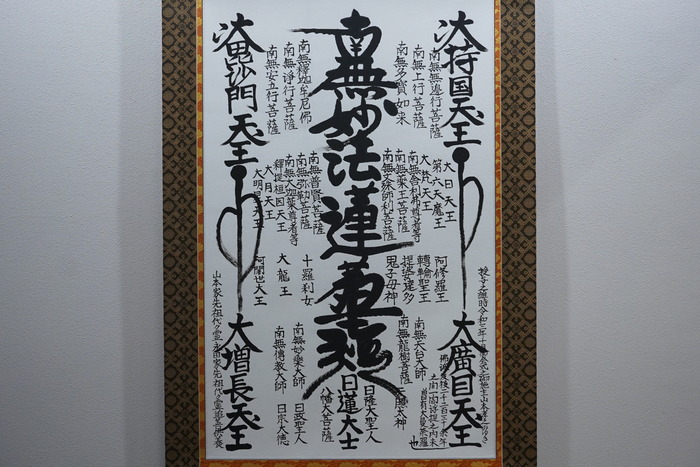 大持国天王
南無無邊行菩薩
南無上行菩薩
南無多寶如来
南無妙法蓮華経
南無釋迦牟尼佛
南無浄行菩薩
南無安立行菩薩
大毘沙門天王
大日天王
第六天魔王
大梵天王
南無舎利弗尊者等
南無薬王菩薩
南無文殊師利菩薩
南無普賢菩薩
南無弥勒菩薩
南無大迦葉尊者等
釋提桓因天王
大月天王
大明星天王
阿修羅王
轉輪聖王
提婆達多
鬼子母神
十羅刹女
大龍王
阿闍世大王
大廣目天王
南無天台大師
南無龍樹菩薩
南無妙樂大師
南無傳教大師
大増長天王
日隆大聖人
日蓮大士
八幡大菩薩
日政聖人
日宗大徳
佛滅度後二千二百三十余年